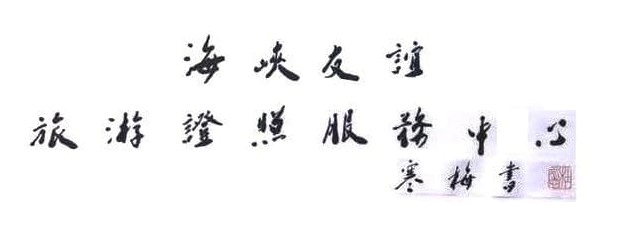 海峽友誼
旅游證照服務中心
寒梅書